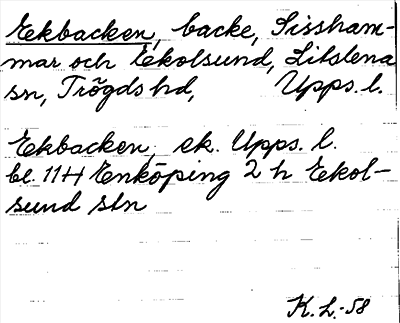 Ekbacken, backe, Sissham-
mar och Ekolsund, Litslena
sn, Trögds hd, Upps. l.
Ekbacken, ek. Upps. l.
bl. 11H Enköping 2 h Ekol-
sund stn
K.L.-58